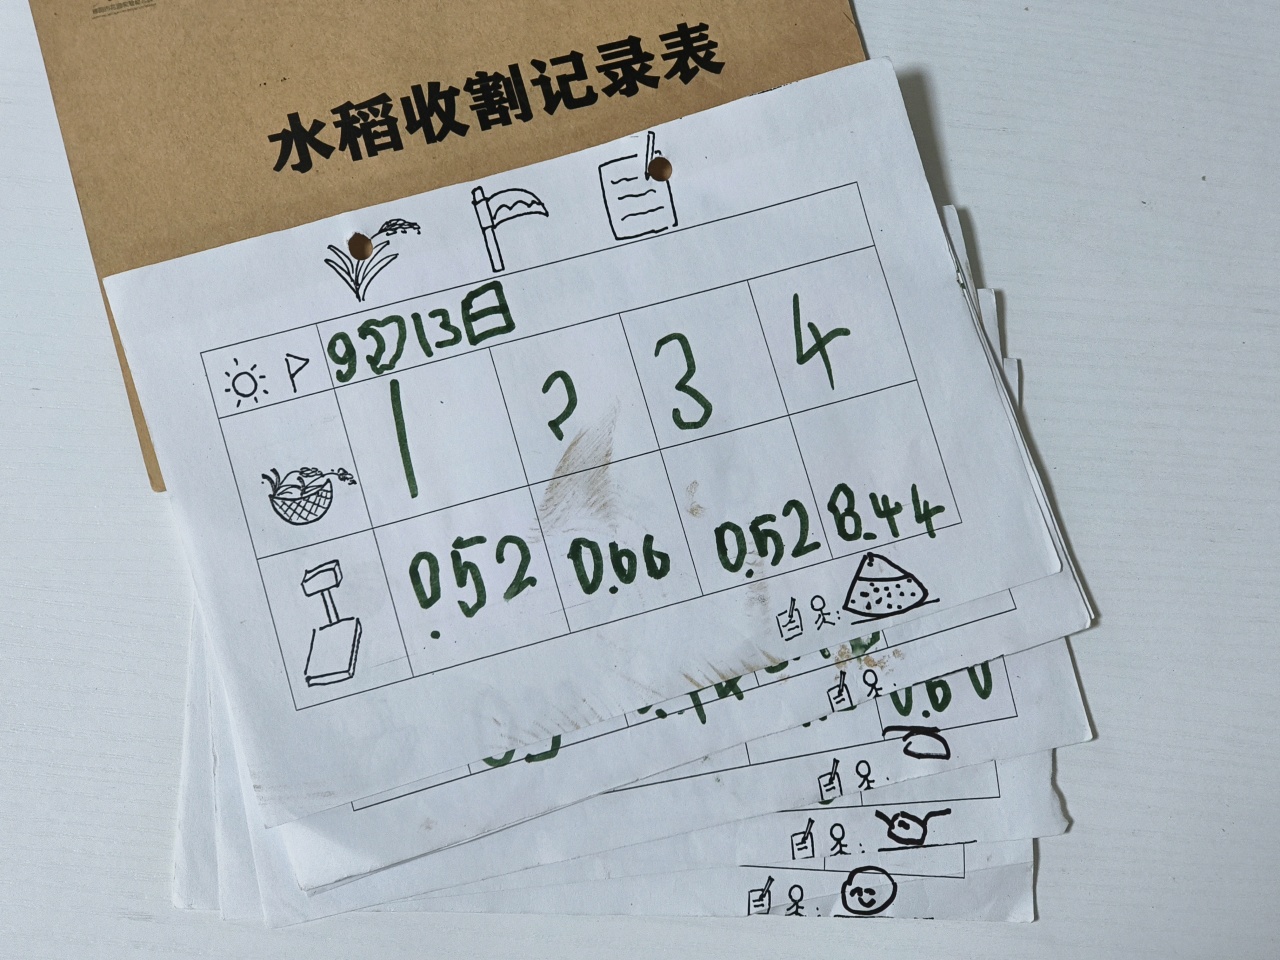 水稻收割记录表
9月13日
1 2 3 4
0.52 0.66 0.52 8.44
0.60